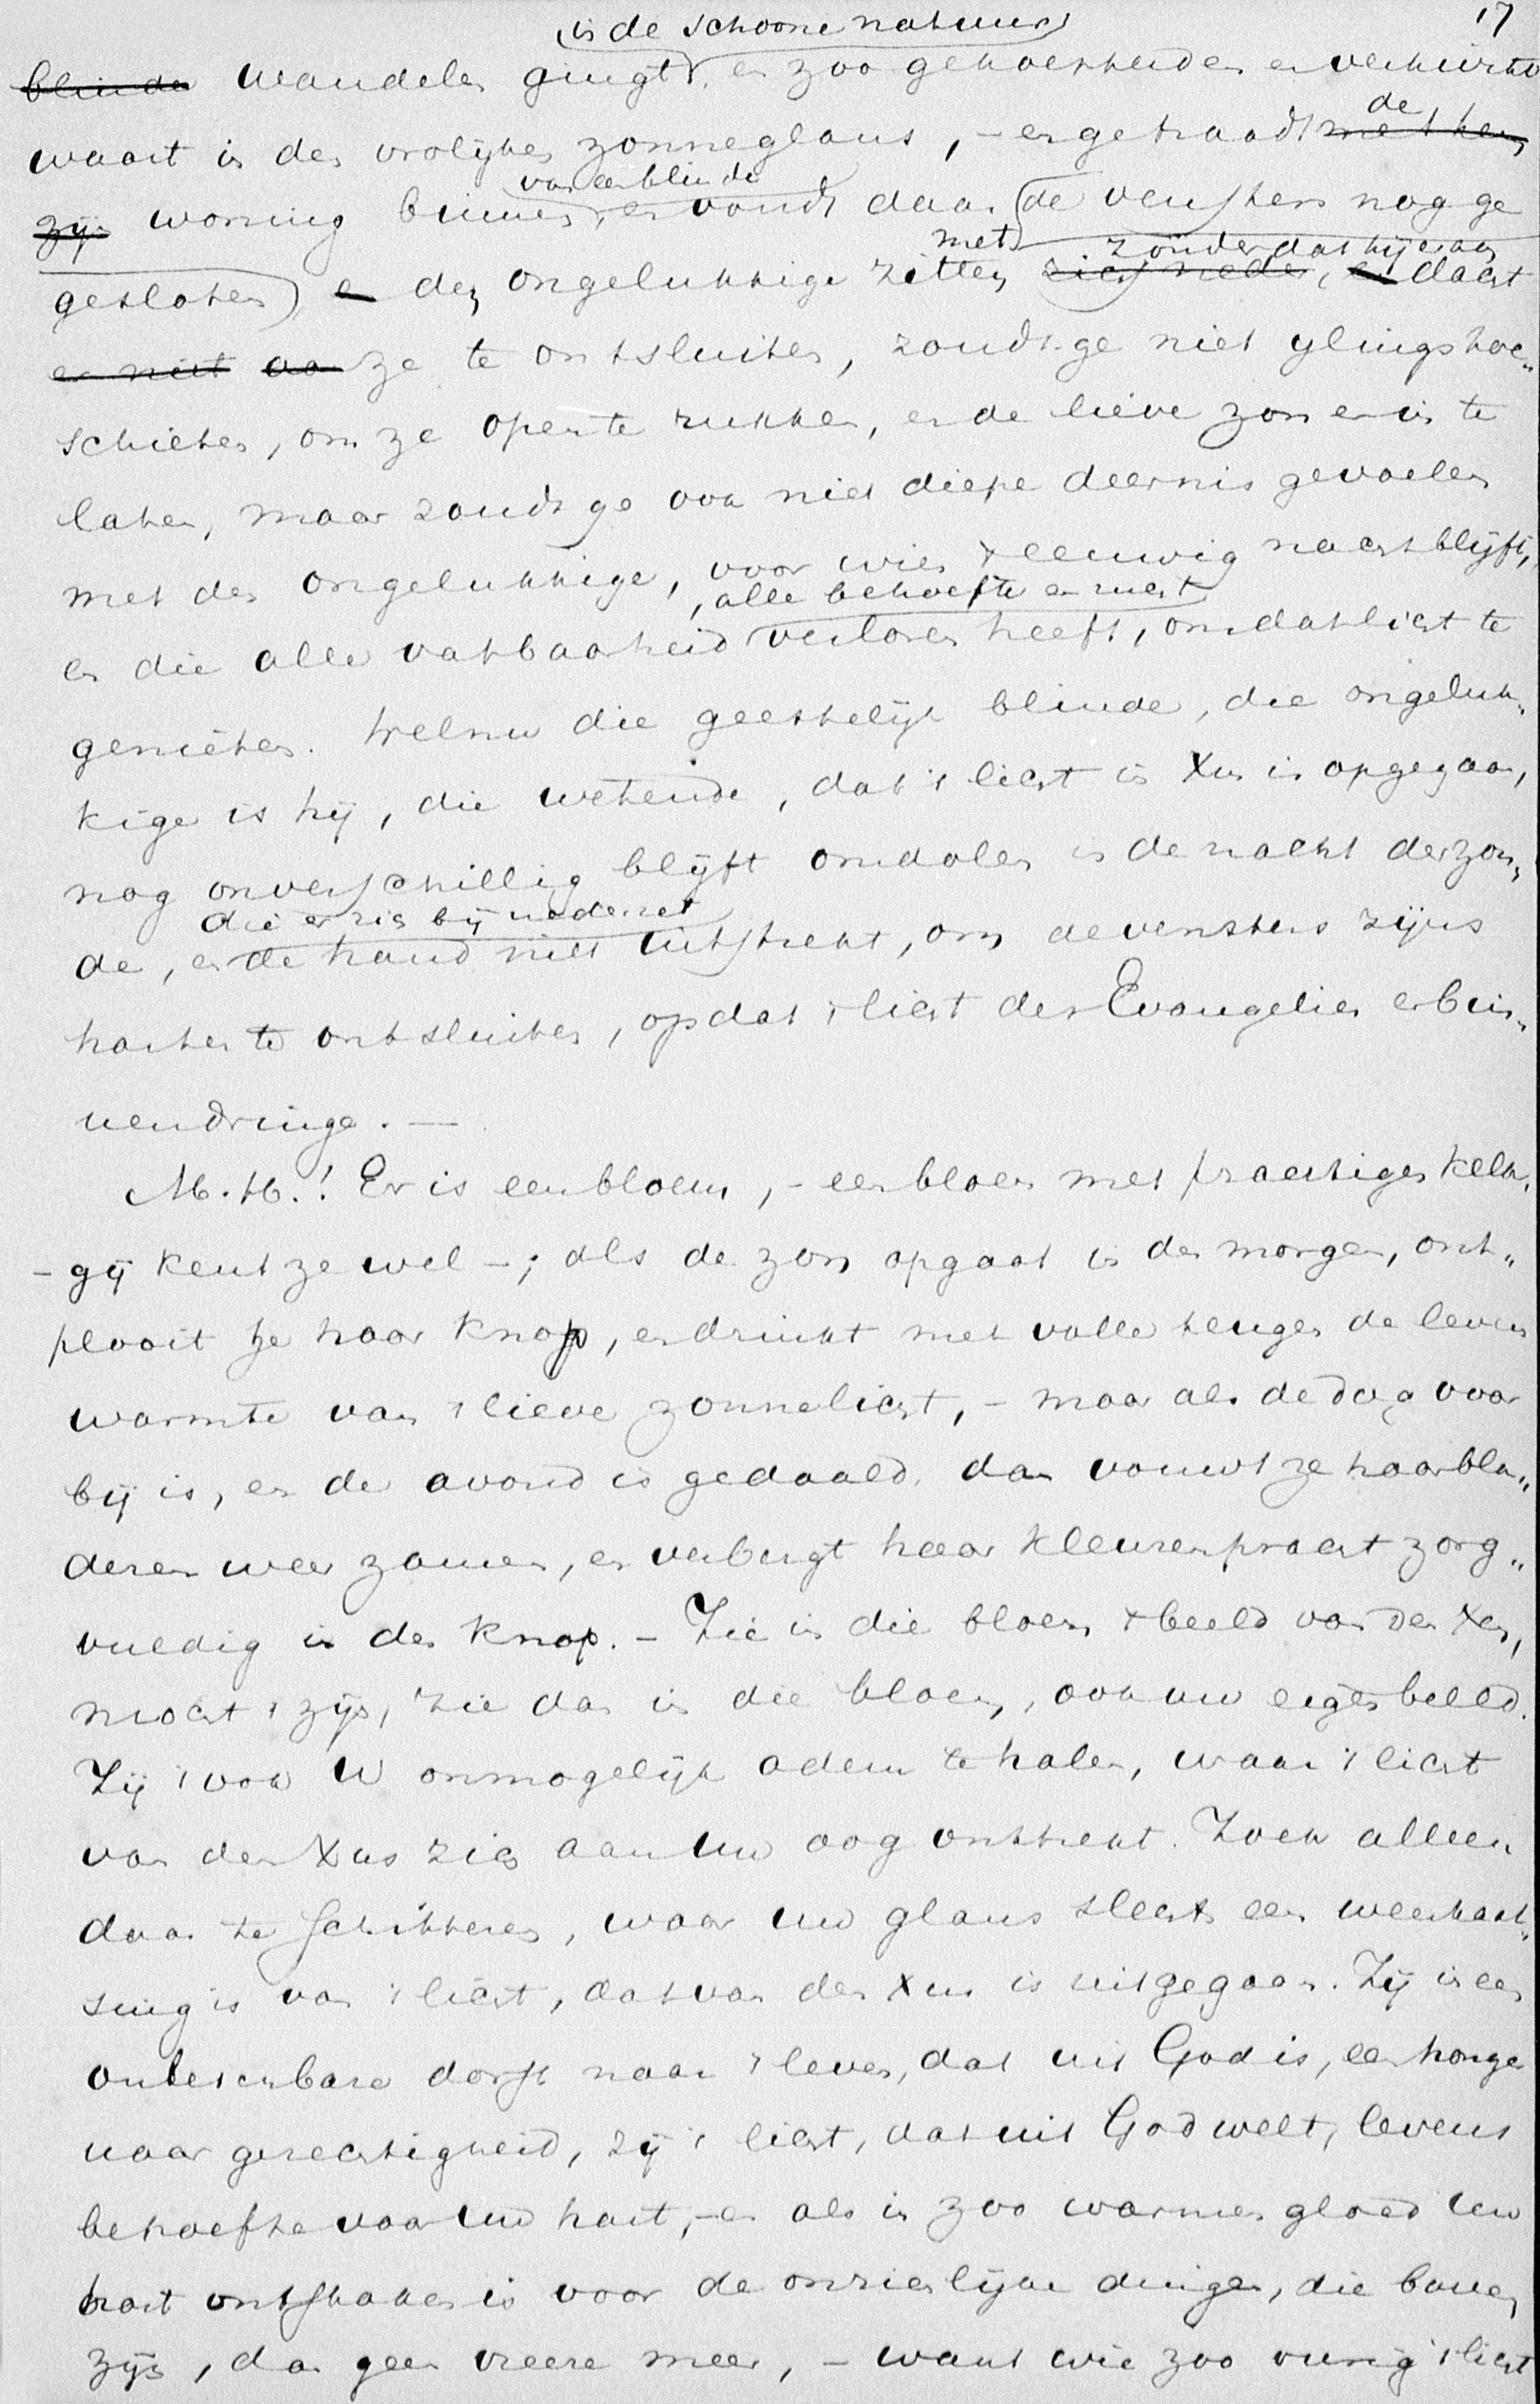 17
in de schoone natuur
blinde wandelen gingt, en zoo gekoesterd en verkwikt
waart in den vrolijken zonneglans, – en ge traadt de met hem
zijn woning binnen van een blinde, en vondt daar de vensters nog ge
gesloten) en den ongelukkige zitten met zich neder, zonder dat hij er aan en dacht
er niet aan ze te ontsluiten, zoudt ge niet ylings toe„
schieten, om ze open te rukken, en de lieve zon er in te
laten, maar zoudt ge ook niet diepe deernis gevoelen
met den ongelukkige, voor wien 't eeuwig nacht blijft,
en die alle vatbaarheid, alle behoefte en lust verloren heeft, om dat licht te
genieten. Welnu die geestelijk blinde, die ongeluk„
kige is hij, die wetende, dat 't licht in Xus is opgegaan,
nog onverschillig blijft omdolen in de nacht der zon„
de, die er zich bij nederzet en de hand niet uitstrekt, om de vensters zijns
harten te ontsluiten, opdat 't licht des Evangelies er bin„
nendringe. —
M. H.! Er is een bloem, – een bloem met prachtigen kelk,
– gij kent ze wel –; als de zon opgaat in den morgen, ont„
plooit ze haar knop, en drinkt met volle teugen de levens
warmte van 't lieve zonnelicht, – maar als de dag voor
bij is, en de avond is gedaald, dan vouwt ze haar bla„
deren weer zamen, en verbergt haar kleurenpracht zorg„
vuldig in den knop. – Zie in die bloem 't beeld van den Xen,
mocht 't zijn, zie dan in die bloem, ook uw eigen beeld.
Zij 't ook U onmogelijk adem te halen, waar 't licht
van den Xus zich aan uw oog onttrekt. Zoek alleen
daar te schitteren, waar uw glans slechts een weerkaat„
sing is van 't licht, dat van den Xus is uitgegaan. Zij in een
onlesbare dorst naar 't leven, dat uit God is, een honger
naar gerechtigheid, zij 't licht, dat uit God welt, levens
behoefte voor uw hart, – en als in zoo warmen gloed uw
hart ontstoken is voor de onzienlijke dingen, die boven
zijn, dan geen vreeze meer, – want wie zoo vurig 't licht